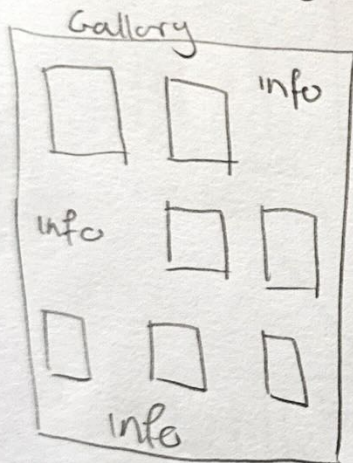 Gallary
info
info
info